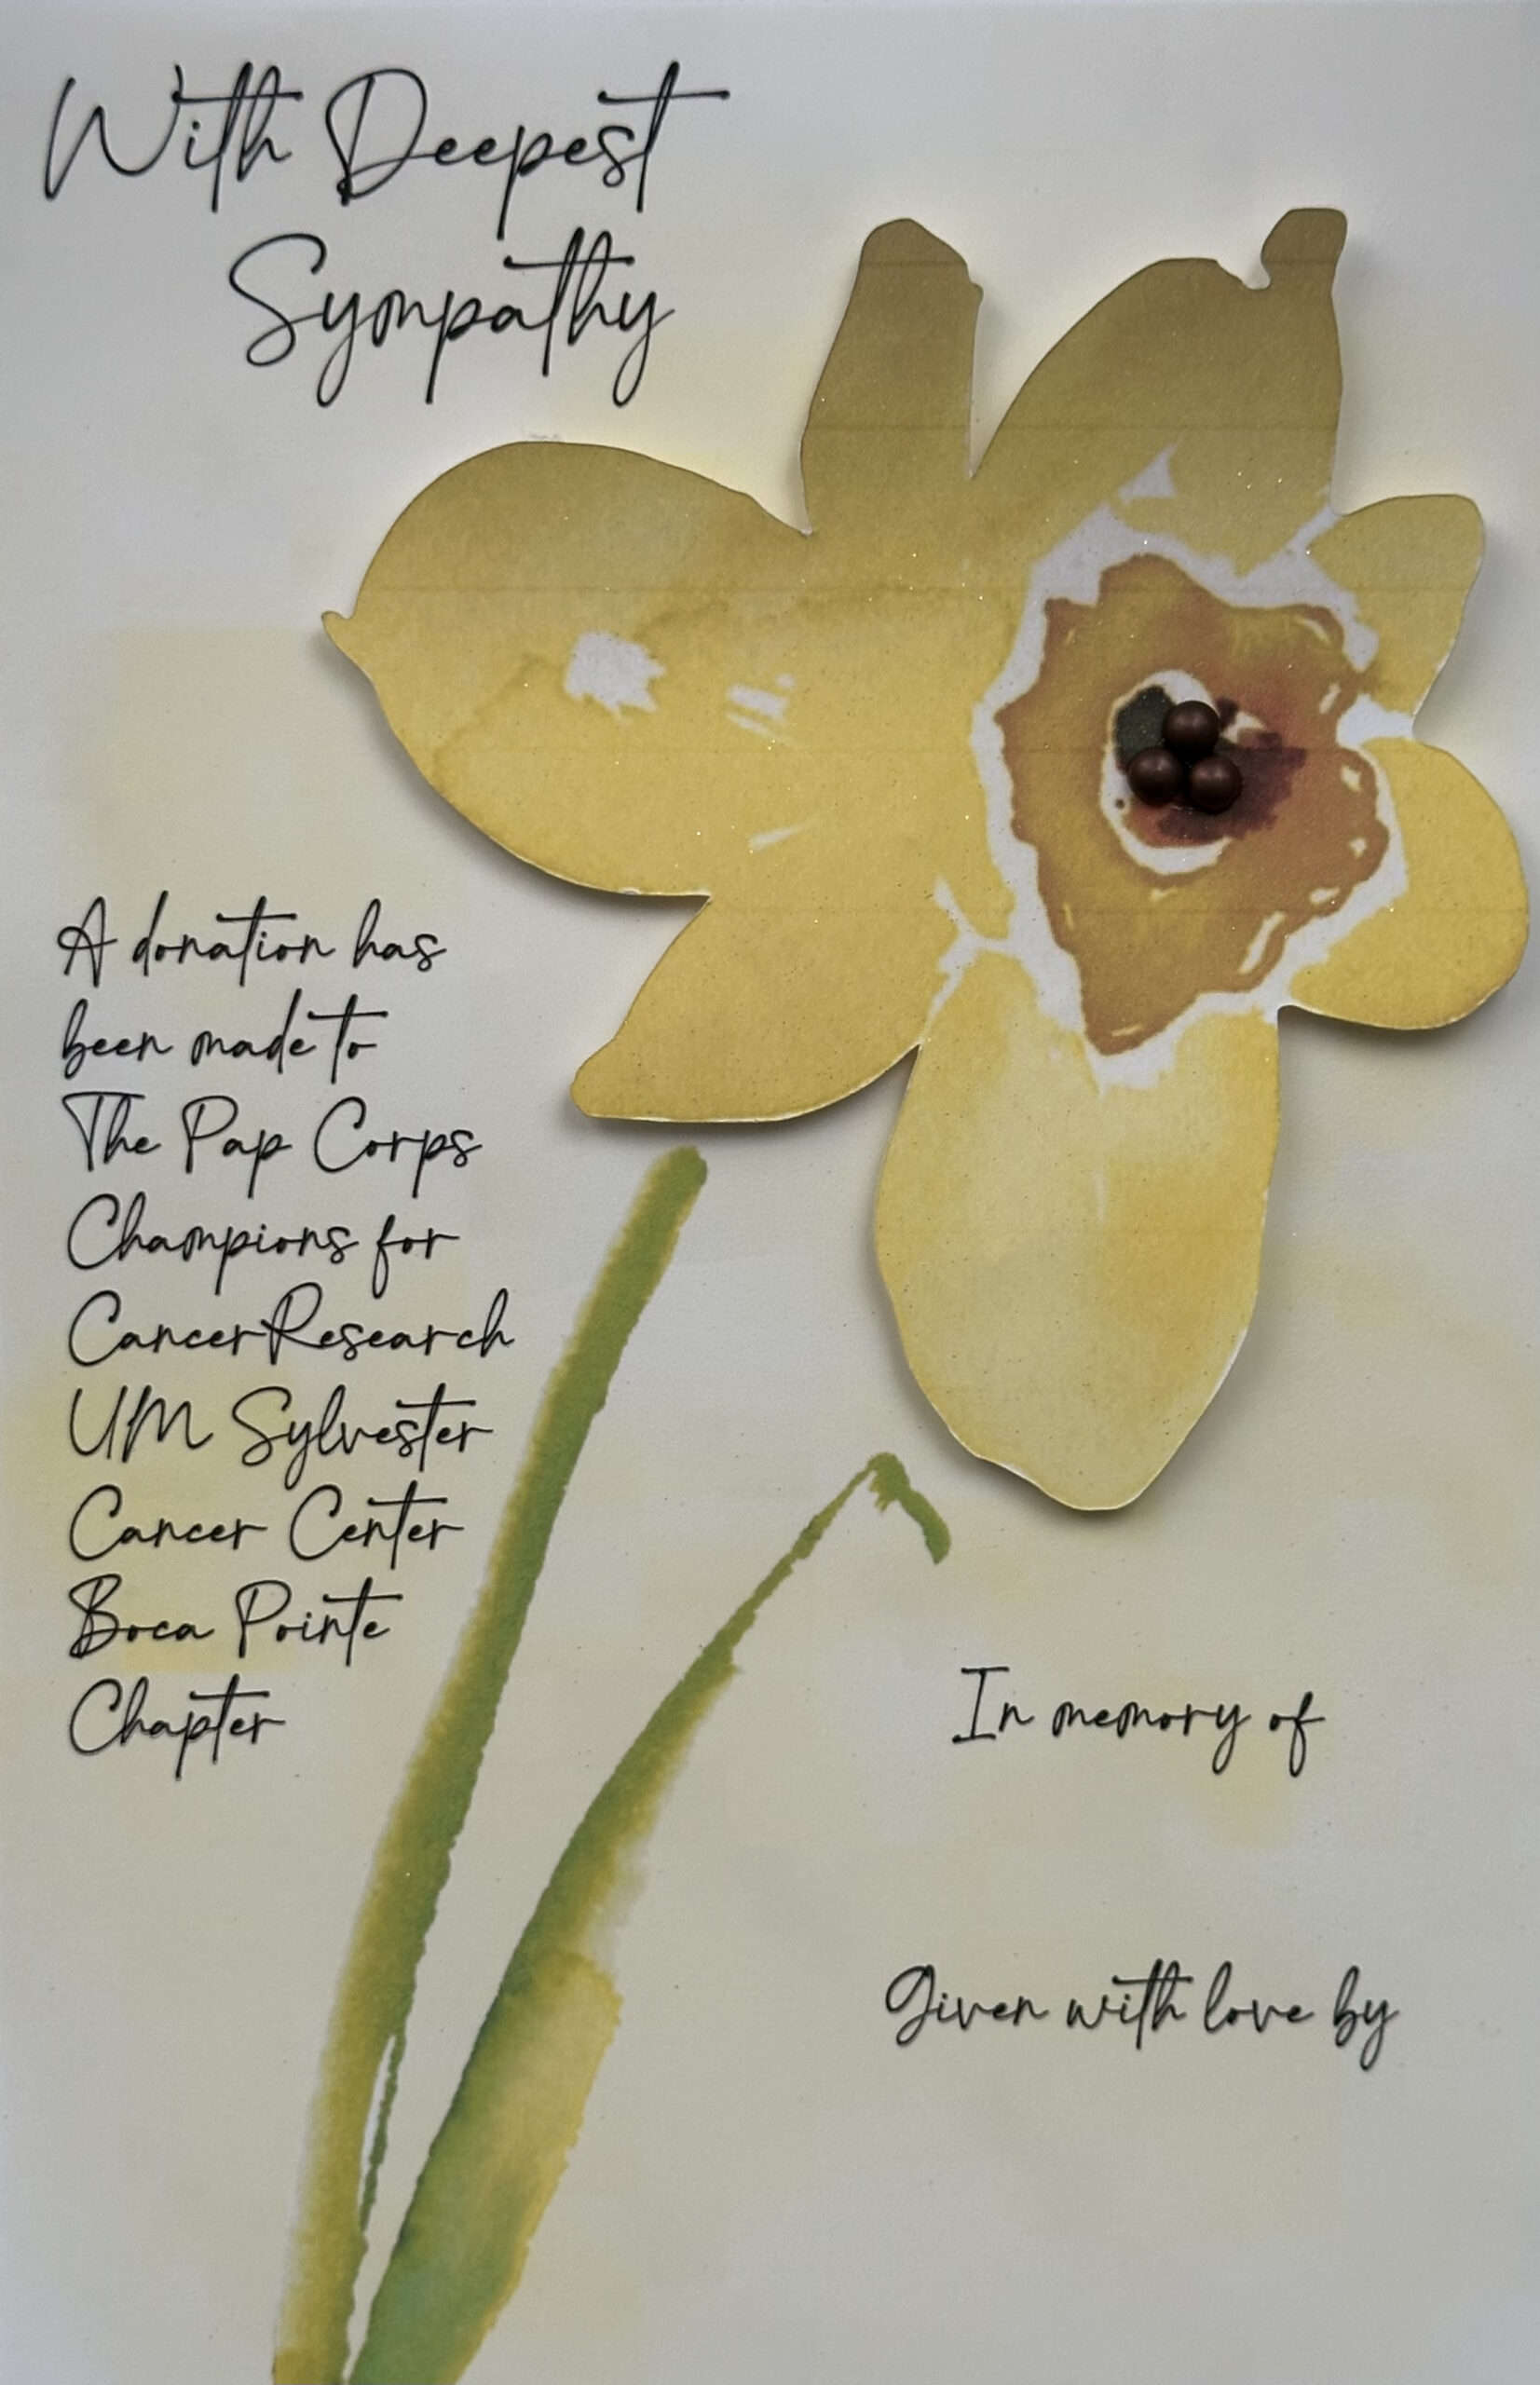 With Deepest
Sympathy
A donation has
been made to
The Pap Corps
Champions for
CancerResearch
UM Sylvester
Cancer Center
Boca Pointe
Chapter
In memory of
Given with love by